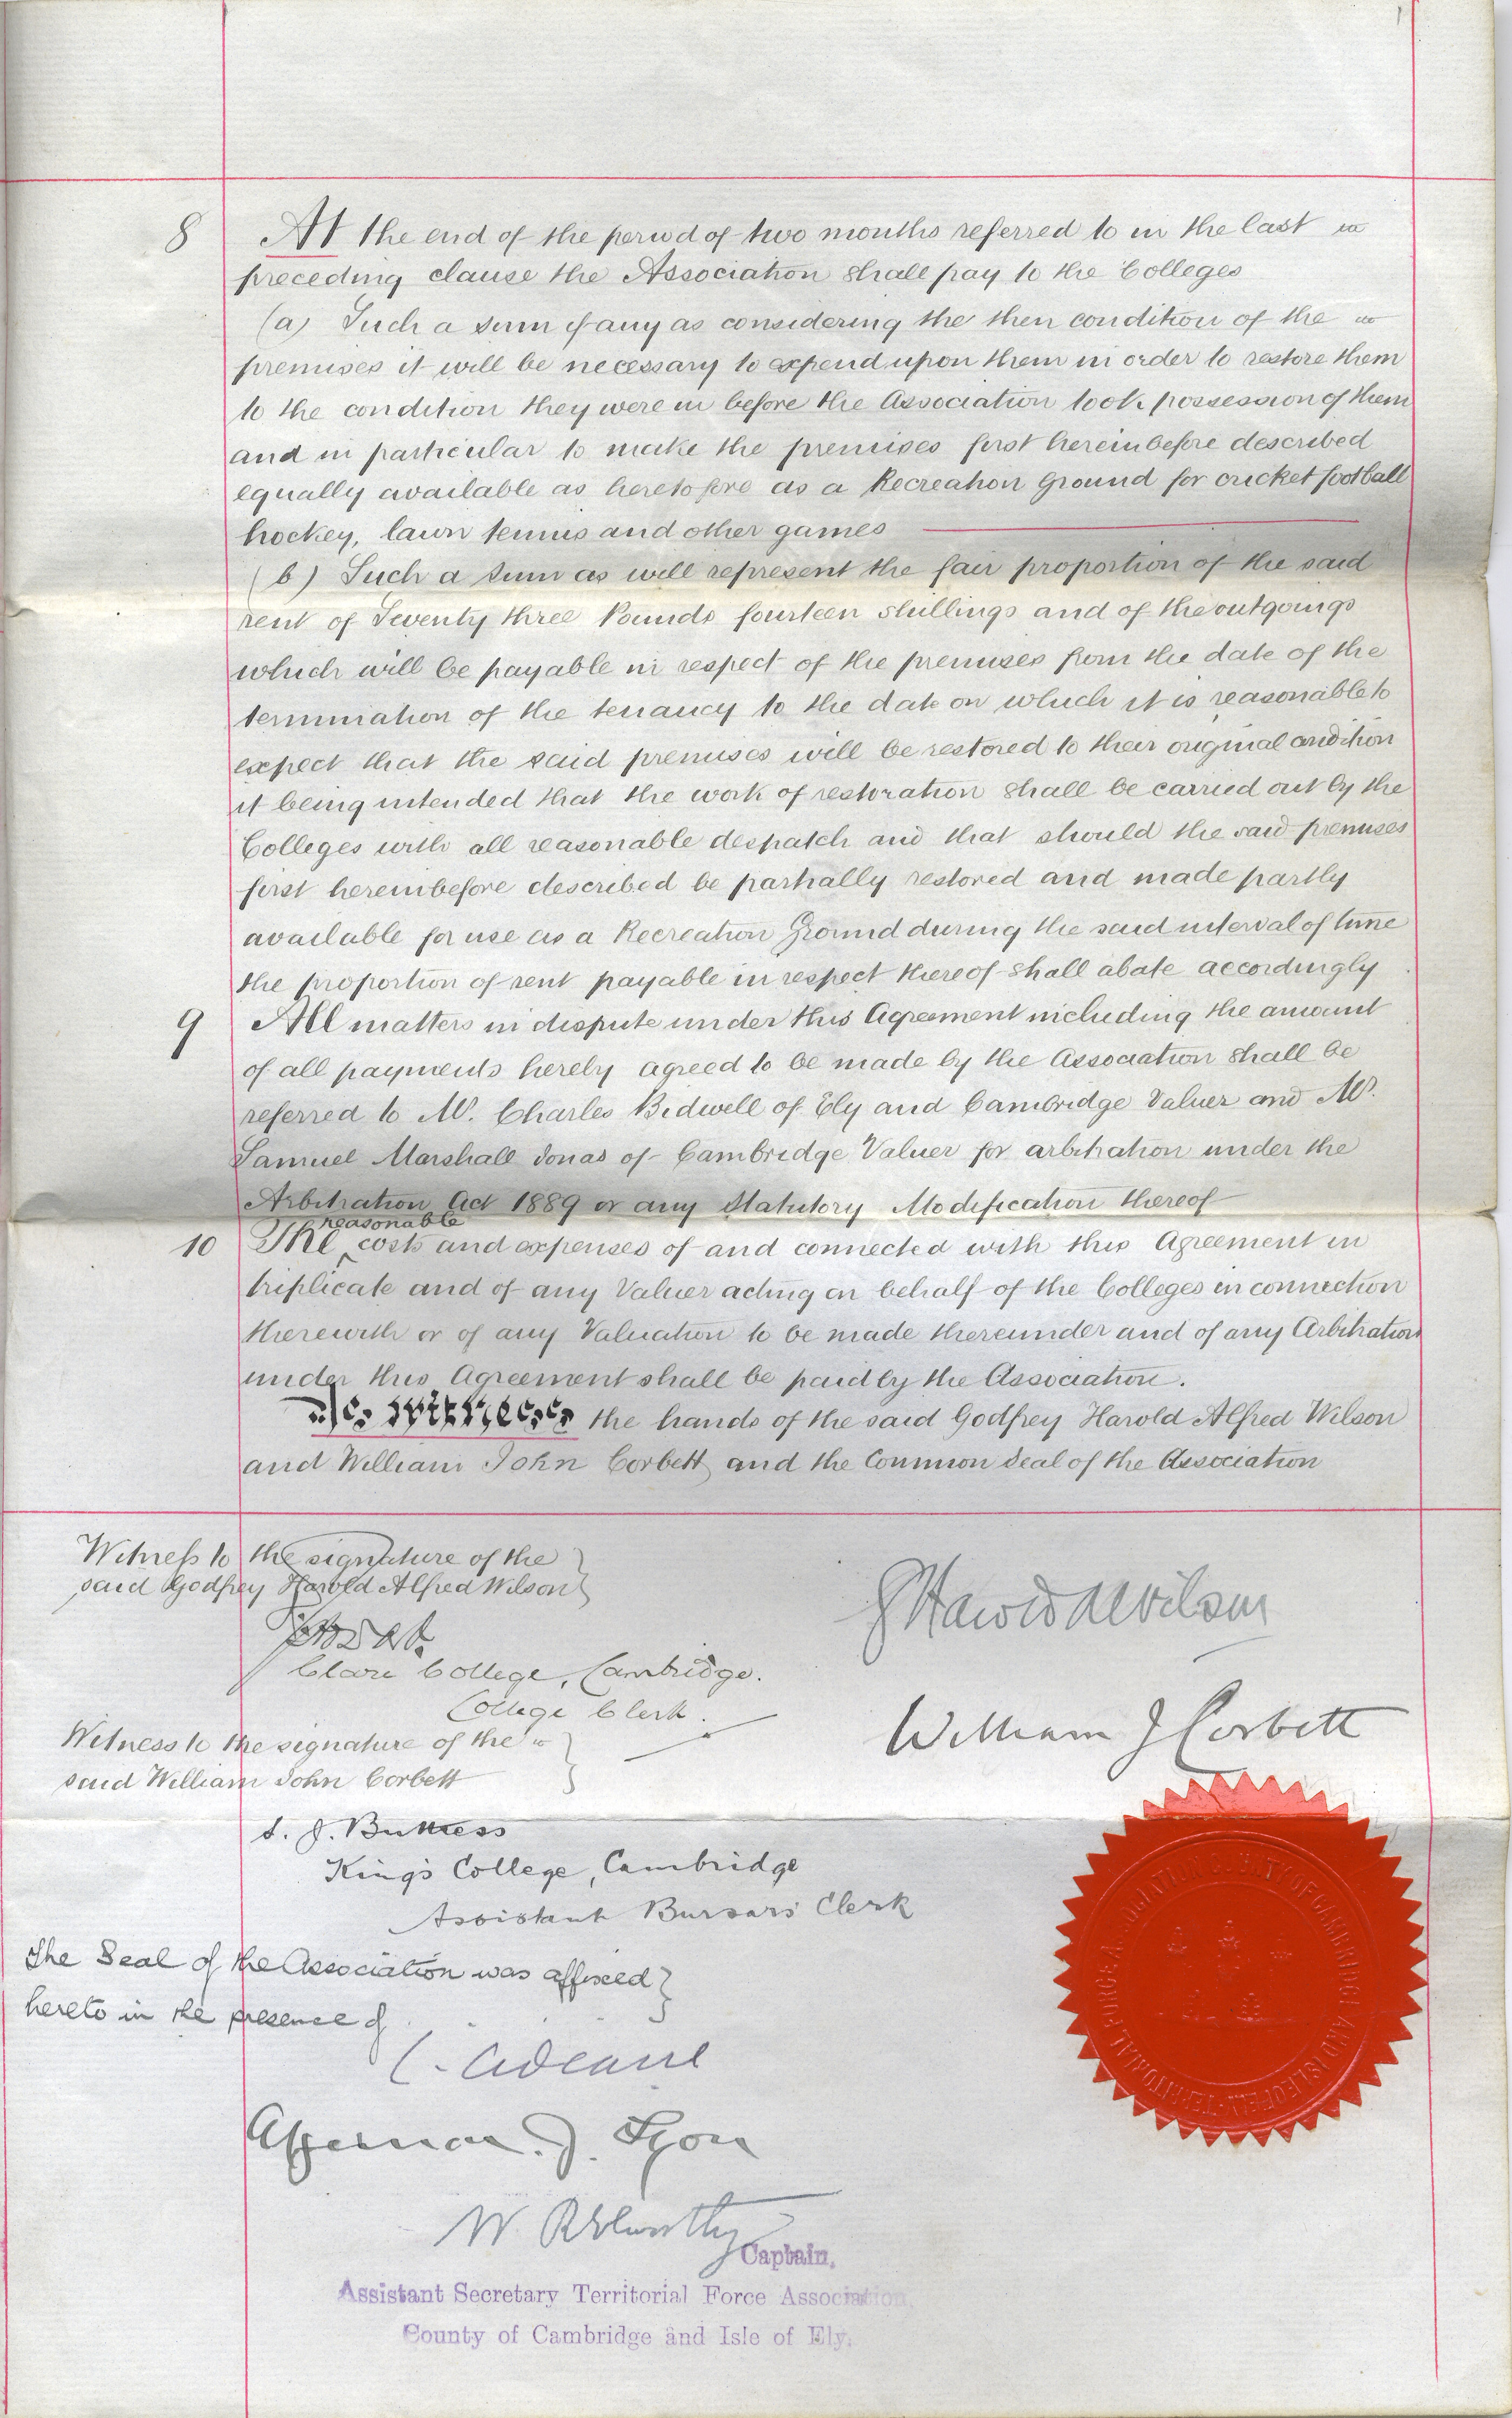 8 At the end of the period of two months referred to in the last
preceding clause the Association shall pay to the Colleges
(a) Such a sum if any as considering the then condition of the
premises it will be necessary to expend upon them in order to restore them
to the condition they were in before the Association took possession of them
and in particular to make the premises first hereinbefore described
equally available as heretofore as a Recreation Ground for cricket football
hockey, lawn tennis and other games
(b) Such a sum as will represent the fair proportion of the said
rent of Seventy three Pounds fourteen shillings and of the outgoings
which will be payable in respect of the premises from the date of the
termination of the tenancy to the date on which it is reasonable to
expect that the said premises will be restored to their original condition
it being intended that the work of restoration shall be carried out by the
Colleges with all reasonable despatch and that should the said premises
first hereinbefore described be partially restored and made partly
available for use as a Recreation Ground during the said interval of time
the proportion of rent payable in respect thereof shall abate accordingly
9 All matters in dispute under this Agreement including the amount
of all payments hereby agreed to be made by the Association shall be
referred to Mr. Charles Bidwell of Ely and Cambridge Valuer and Mr.
Samuel Marshall Jonas of Cambridge Valuer for arbitration under the
Arbitration Act 1889 or any Statutory Modification thereof
10 The reasonable costs and expenses of and connected with this Agreement in
triplicate and of any Valuer acting on behalf of the Colleges in connection
therewith or of any Valuation to be made thereunder and of any Arbitration
under this Agreement shall be paid by the Association.
As Witness the hands of the said Godfrey Harold Alfred Wilson
and William John Corbett and the Common Seal of the Association
Witness to the signature of the
said Godfrey Harold Alfred Wilson
G Harold A Wilson
Clare College, Cambridge.
College Clerk.
William J Corbett
Witness to the signature of the
said William John Corbett
S. J. Buttress
King's College, Cambridge
Assistant Bursars' Clerk
The Seal of the Association was affixed
hereto in the presence of
C. Adeane
J. Lyon
Captain,
Assistant Secretary Territorial Force Association,
County of Cambridge and Isle of Ely.
TERRITORIAL FORCE ASSOCIATION COUNTY OF CAMBRIDGE AND ISLE OF ELY